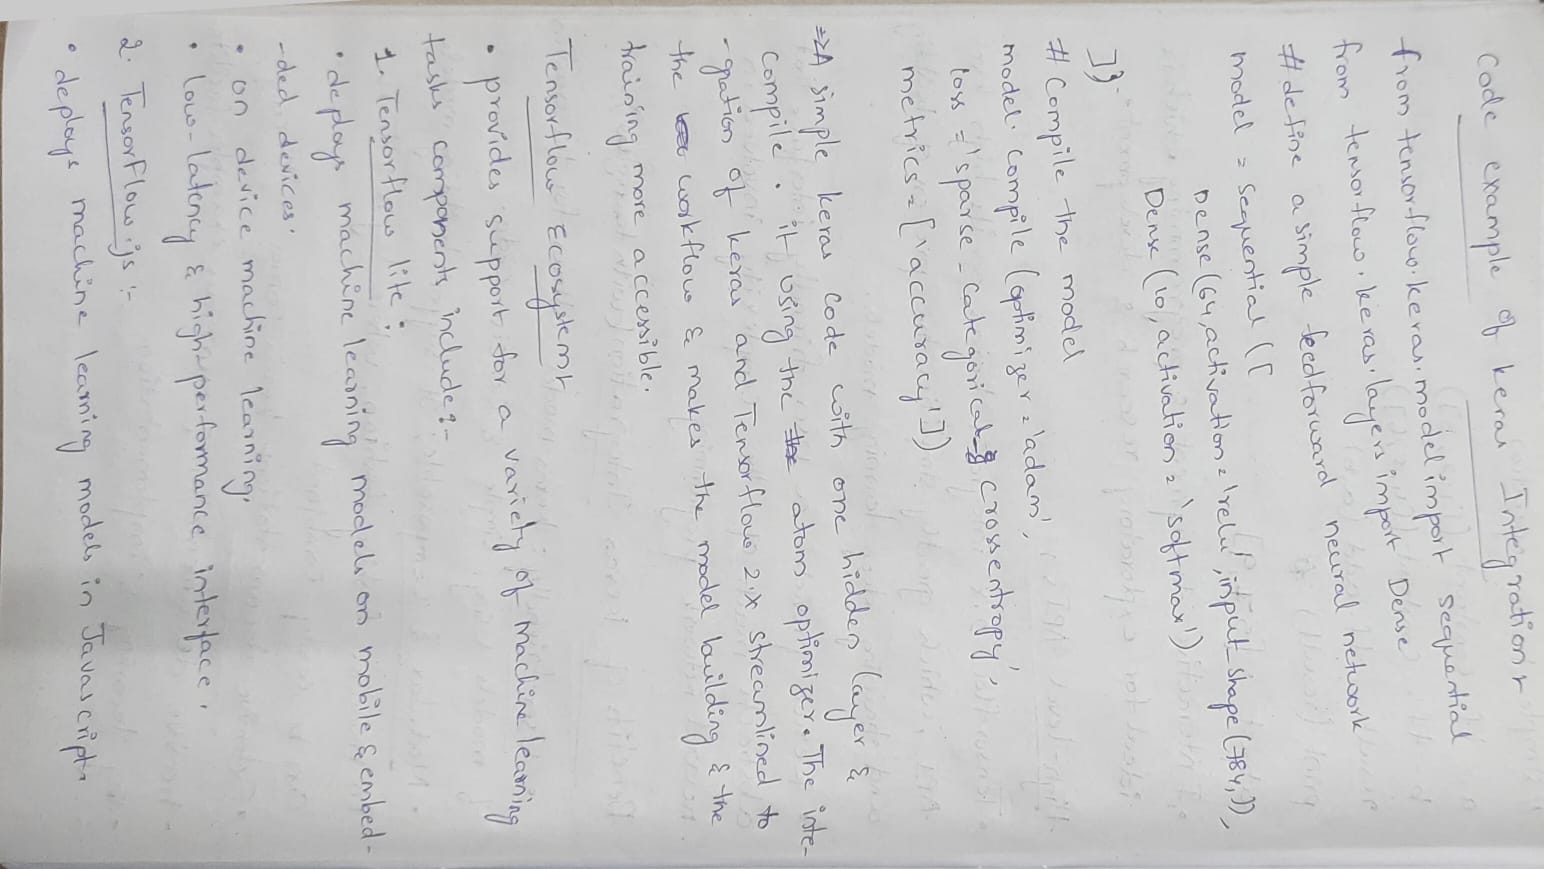 Code example of keras Integration:-
from tensorflow.keras.model import sequential
from tensorflow.keras.layers import Dense
# define a simple feedforward neural network
model = Sequential ([
Dense (64, activation = 'relu', input_shape (784,)),
Dense (10, activation = 'softmax')
])
# Compile the model
model. compile (optimizer = 'adam',
loss = 'sparse_categorical_crossentropy',
metrics = ['accuracy'])
=> A simple keras code with one hidden layer &
compile . it using the atom optimizer. The inte-
-gration of keras and Tensorflow 2.x streamlined to
the workflow & makes the model building & the
training more accessible.
Tensorflow Ecosystem:-
• provides support for a variety of machine learning
tasks components include :-
1. Tensorflow lite :
• deploys machine learning models on mobile & embed-
-ded devices.
• on device machine learning.
• low-latency & high-performance interface.
2. TensorFlow.js :-
• deploys machine learning models in Javascript.